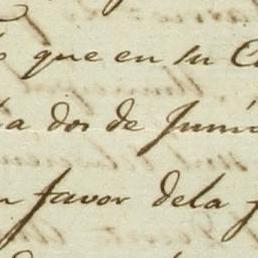 que en su
a dos de Juni
favor dela